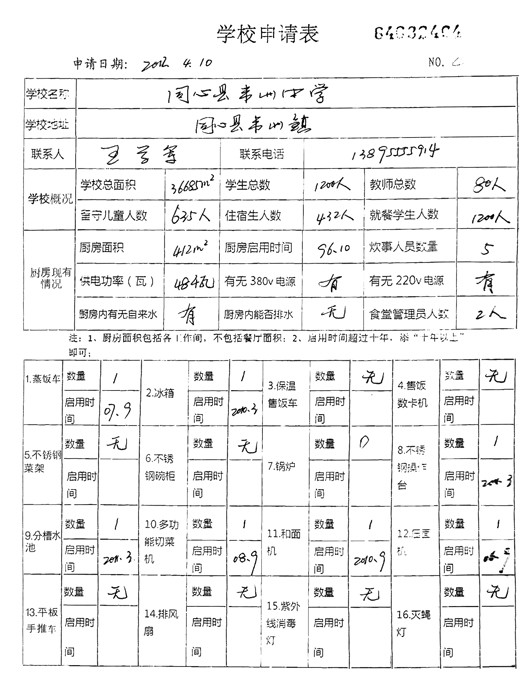 学校申请表 64032404
申请日期: 2012 4.10 NO.
学校名称 同心县韦州中学
学校地址 同心县韦州镇
联系人 王 联系电话 13895555914
学校概况 学校总面积 36685m² 学生总数 1200人 教师总数 80人
留守儿童人数 635人 住宿生人数 432人 就餐学生人数 1200人
厨房现有情况 厨房面积 412m² 厨房启用时间 96.10 炊事人员数量 5
供电功率（瓦） 有无 380v 电源 有 有无 220v 电源 有
厨房内有无自来水 有 厨房内能否排水 无 食堂管理员人数 2人
注: 1、厨房面积包括各工作间, 不包括餐厅面积; 2、启用时间超过十年, 添"十年以上"
即可;
1.蒸饭车 数量 1 2.冰箱 数量 1 3.保温售饭车 数量 无 4.售饭数卡机 数量 无
启用时间 07.9 启用时间 2010.3 启用时间 启用时间
5.不锈钢菜架 数量 无 6.不锈钢碗柜 数量 无 7.锅炉 数量 0 8.不锈钢 台 数量 1
启用时间 启用时间 启用时间 启用时间
9.分槽水池 数量 1 10.多功能切菜机 数量 1 11.和面机 数量 1 12. 机 数量 1
启用时间 启用时间 08.9 启用时间 2010.9 启用时间
13.平板手推车 数量 无 14.排风扇 数量 无 15.紫外线消毒灯 数量 无 16.灭蝇灯 数量 无
启用时间 启用时间 启用时间 启用时间